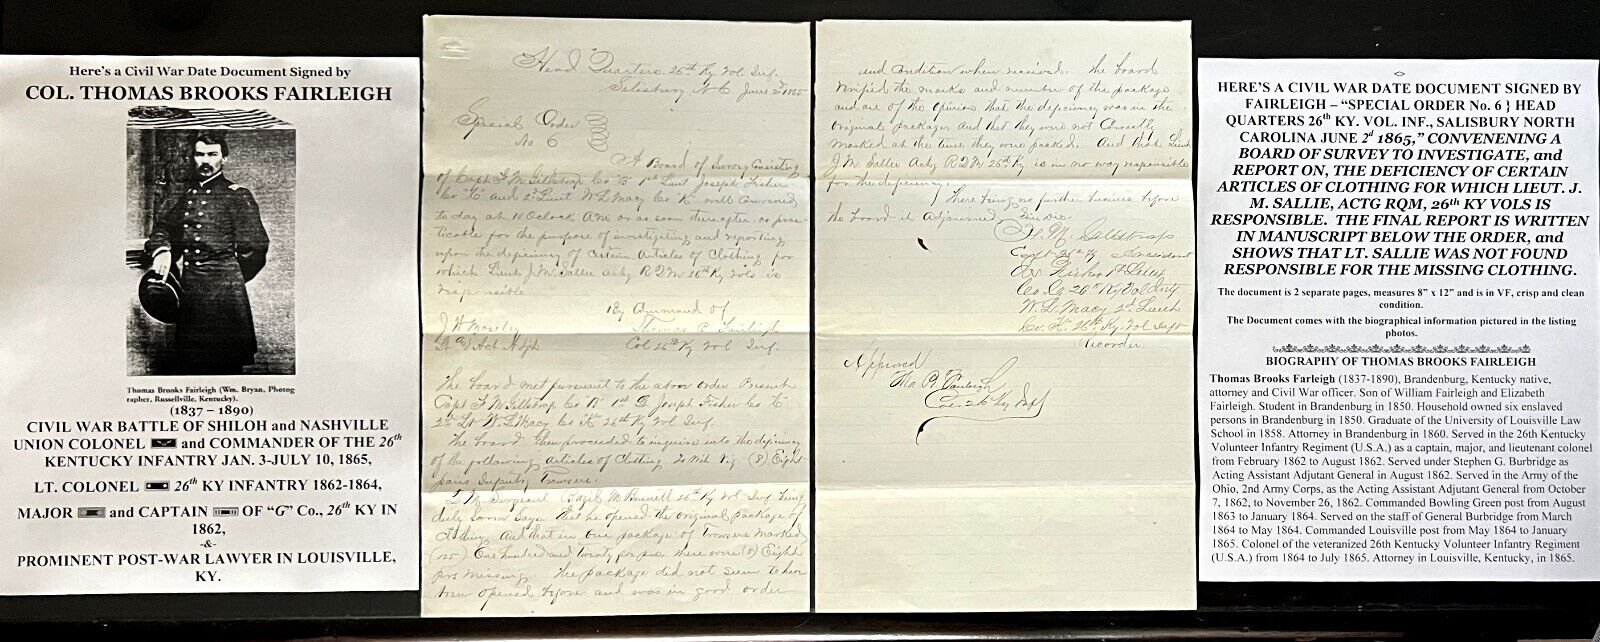 Here's a Civil War Date Document Signed by
COL. THOMAS BROOKS FAIRLEIGH
Thomas Brooks Fairleigh (Wm. Bryan, Photog
rapher, Russellville, Kentucky).
(1837 – 1890)
CIVIL WAR BATTLE OF SHILOH and NASHVILLE
UNION COLONEL and COMMANDER OF THE 26th
KENTUCKY INFANTRY JAN. 3-JULY 10, 1865,
LT. COLONEL 26th KY INFANTRY 1862-1864,
MAJOR and CAPTAIN OF “G” Co., 26th KY IN
1862,
-&-
PROMINENT POST-WAR LAWYER IN LOUISVILLE,
KY.
Head Quarters 26th Ky Vol Inf.
Salisbury N C June 2d 1865
Special Order
No 6
A Board of Survey Consisting
of Capt F M Gillstrap Co 1st Lieut Joseph Fisher
Co and 2d Lieut W L Macy Co K will convened
to day at 10 Oclock A M or as soon thereafter as prac-
ticable for the purpose of investigating and reporting
upon the deficiency of Certain Articles of Clothing for
which Lieut J M Sallee Actg R Q M 26th Ky Vols is
responsible
By Command of
J W Moseley Thomas B Fairleigh
Lt & Act Adjt Col 26th Ky Vol Inf.
The board met pursuant to the above order Present
Capt F M Gillstrap Co 1st Lt Joseph Fisher Co
2d Lt W L Macy Co K 26th Ky Vol Inf.
The board then proceeded to inquire into the deficiency
of the following articles of Clothing To Wit (8) Eight
pairs Infantry Trowsers.
Q M Sergeant M 26th Ky Vol Inf being
duly Sworn Says that he opened the original package of
Clothing and that in one package of Trowsers Marked
(125) One hundred and twenty prs there were (8) Eight
prs missing. The package did not seem to have
been opened before and was in good order
and Condition when received. The board
Verified the marks and number of the package
and are of the opinion that the deficiency was in the
original packages and that they were not Correctly
marked at the time they were packed. And that Lieut
J M Sallee Actg R Q M 26th Ky is in no way responsible
for the deficiency.
There being no further business before
the board it adjourned Sine die
F. M. Gillstrap
Capt 26th Ky President
Jos Fisher 1st Lieut
Co G 26th Ky Vol Infty
W. L. Macy 2d Lieut
Co. K 26th Ky. Vol Infty
Recorder.
Approved
Tho B Fairleigh
Col 26 Ky Inf
HERE'S A CIVIL WAR DATE DOCUMENT SIGNED BY
FAIRLEIGH – “SPECIAL ORDER No. 6 } HEAD
QUARTERS 26th KY. VOL. INF., SALISBURY NORTH
CAROLINA JUNE 2d 1865,” CONVENENING A
BOARD OF SURVEY TO INVESTIGATE, and
REPORT ON, THE DEFICIENCY OF CERTAIN
ARTICLES OF CLOTHING FOR WHICH LIEUT. J.
M. SALLIE, ACTG RQM, 26th KY VOLS IS
RESPONSIBLE. THE FINAL REPORT IS WRITTEN
IN MANUSCRIPT BELOW THE ORDER, and
SHOWS THAT LT. SALLIE WAS NOT FOUND
RESPONSIBLE FOR THE MISSING CLOTHING.
The document is 2 separate pages, measures 8” x 12” and is in VF, crisp and clean
condition.
The Document comes with the biographical information pictured in the listing
photos.
BIOGRAPHY OF THOMAS BROOKS FAIRLEIGH
Thomas Brooks Farleigh (1837-1890), Brandenburg, Kentucky native,
attorney and Civil War officer. Son of William Fairleigh and Elizabeth
Fairleigh. Student in Brandenburg in 1850. Household owned six enslaved
persons in Brandenburg in 1850. Graduate of the University of Louisville Law
School in 1858. Attorney in Brandenburg in 1860. Served in the 26th Kentucky
Volunteer Infantry Regiment (U.S.A.) as a captain, major, and lieutenant colonel
from February 1862 to August 1862. Served under Stephen G. Burbridge as
Acting Assistant Adjutant General in August 1862. Served in the Army of the
Ohio, 2nd Army Corps, as the Acting Assistant Adjutant General from October
7, 1862, to November 26, 1862. Commanded Bowling Green post from August
1863 to January 1864. Served on the staff of General Burbridge from March
1864 to May 1864. Commanded Louisville post from May 1864 to January
1865. Colonel of the veteranized 26th Kentucky Volunteer Infantry Regiment
(U.S.A.) from 1864 to July 1865. Attorney in Louisville, Kentucky, in 1865.